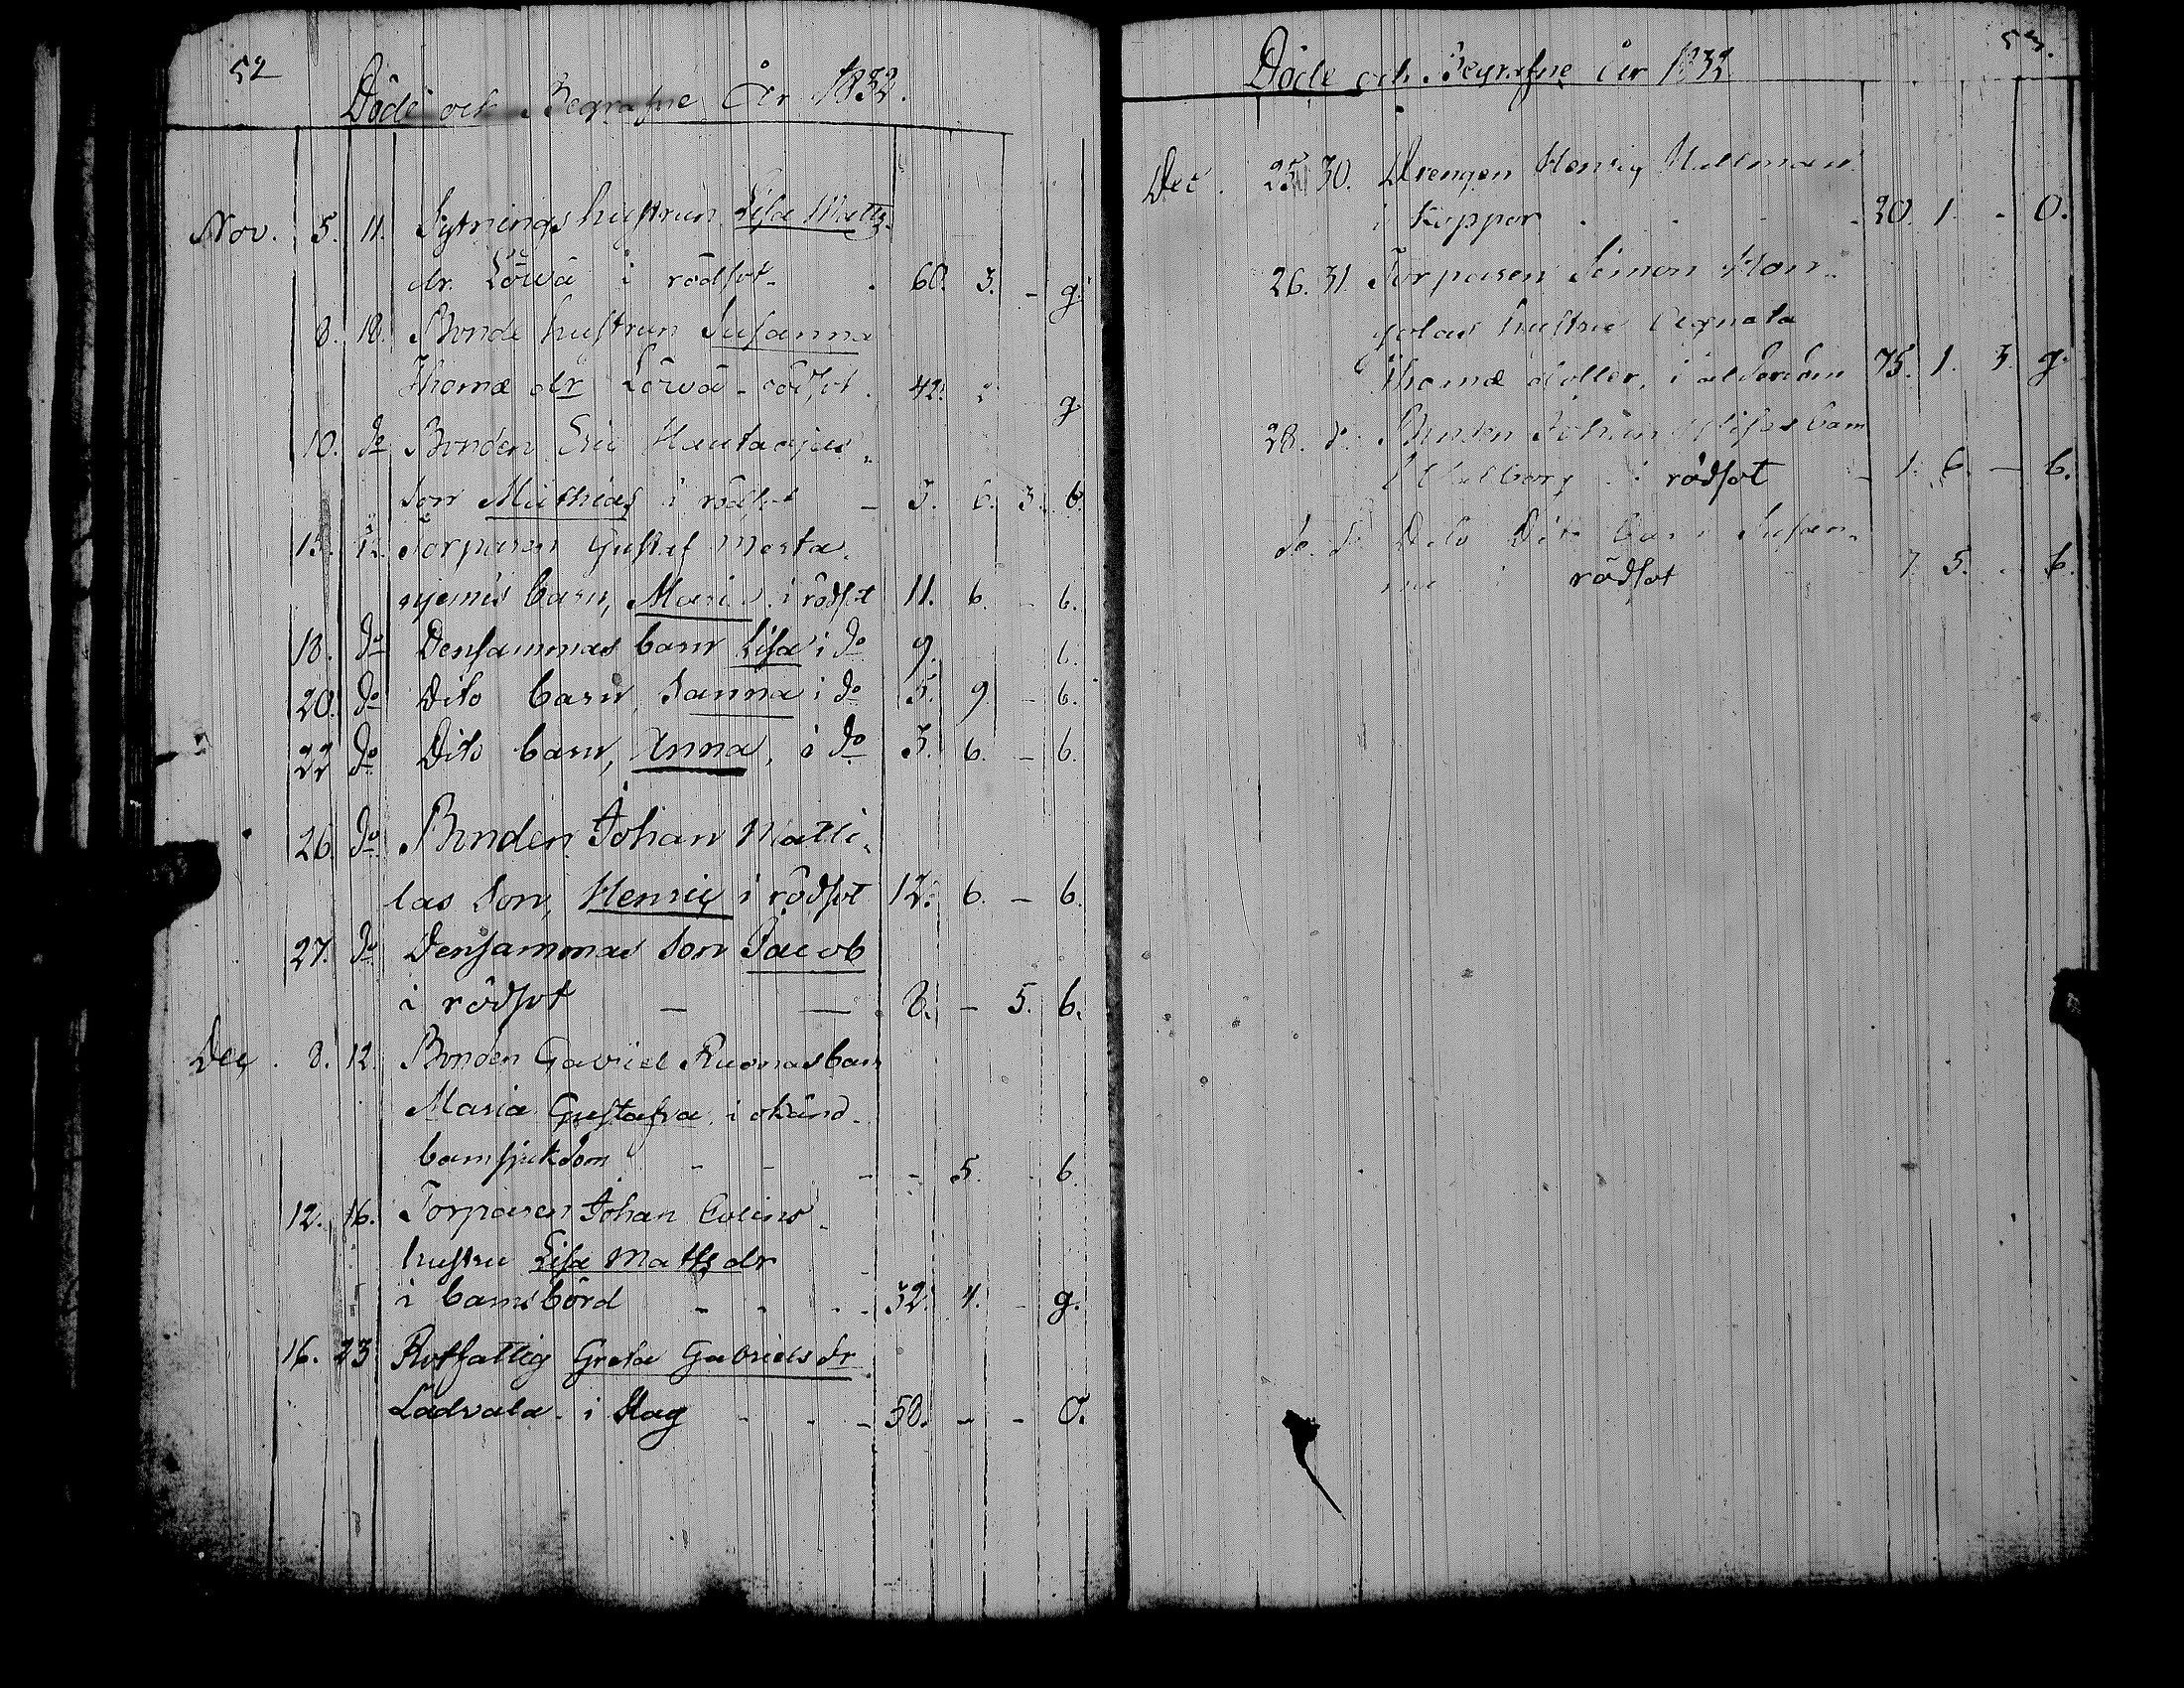 52
Döde och Begrafne År 1832.
Nov. 5. 11. Sytningshustrun Lisa Matts
dr. Löwä i rödsot - . 60. 3. - g.
8. 18. Bonde hustrun Susanna
Thomæ dr Löwä - rödsot . 42. g
10. do Bonden Eric
son Mathias i rödsot - 3. 6. 3. 6.
15. Torparen Gustaf Mesta-
barn, Maria i rödsot 11. 6. - 6.
18. do Densammas barn Lisa i do 9. 6.
20. do Dito barn, Sanna i do 5. 9 - 6.
22 do Dito barn, Anna, i do 3. 6. - 6.
26. do Bonden Johan Matti-
las Son, Henric i rödsot 12. 6. - 6.
27. do Densammas Son Jacob
i rödsot - - 8. - 5. 6.
Dec. 8. 12. Bonden Gabriel Ruonas barn
Maria Gustafva i okänd
barnsjukdom - - - - 5. - 6.
12. 16. Torparen Johan
hustru Lisa Matts dr
i barnsbörd - - - - 32. 4. - g.
16. 23 Rotfattig Greta Gabriels dr
Ladvala - i Slag - - - 58. - - O.
53.
Döde och Begrafne År 1832
Dec. 25. 30. Drengen Henric
i Koppor . - - 20. 1. - O.
26. 31. Torparen Simon
hustru Agneta
Thomæ dotter, i ålderdom 75. 1. 3. g.
28. do Bonden Johan barn
Walborg i rödsot - 1. 6. - 6.
do. do Dito Dito barn Susan-
na i rödsot 7 5. - 6.